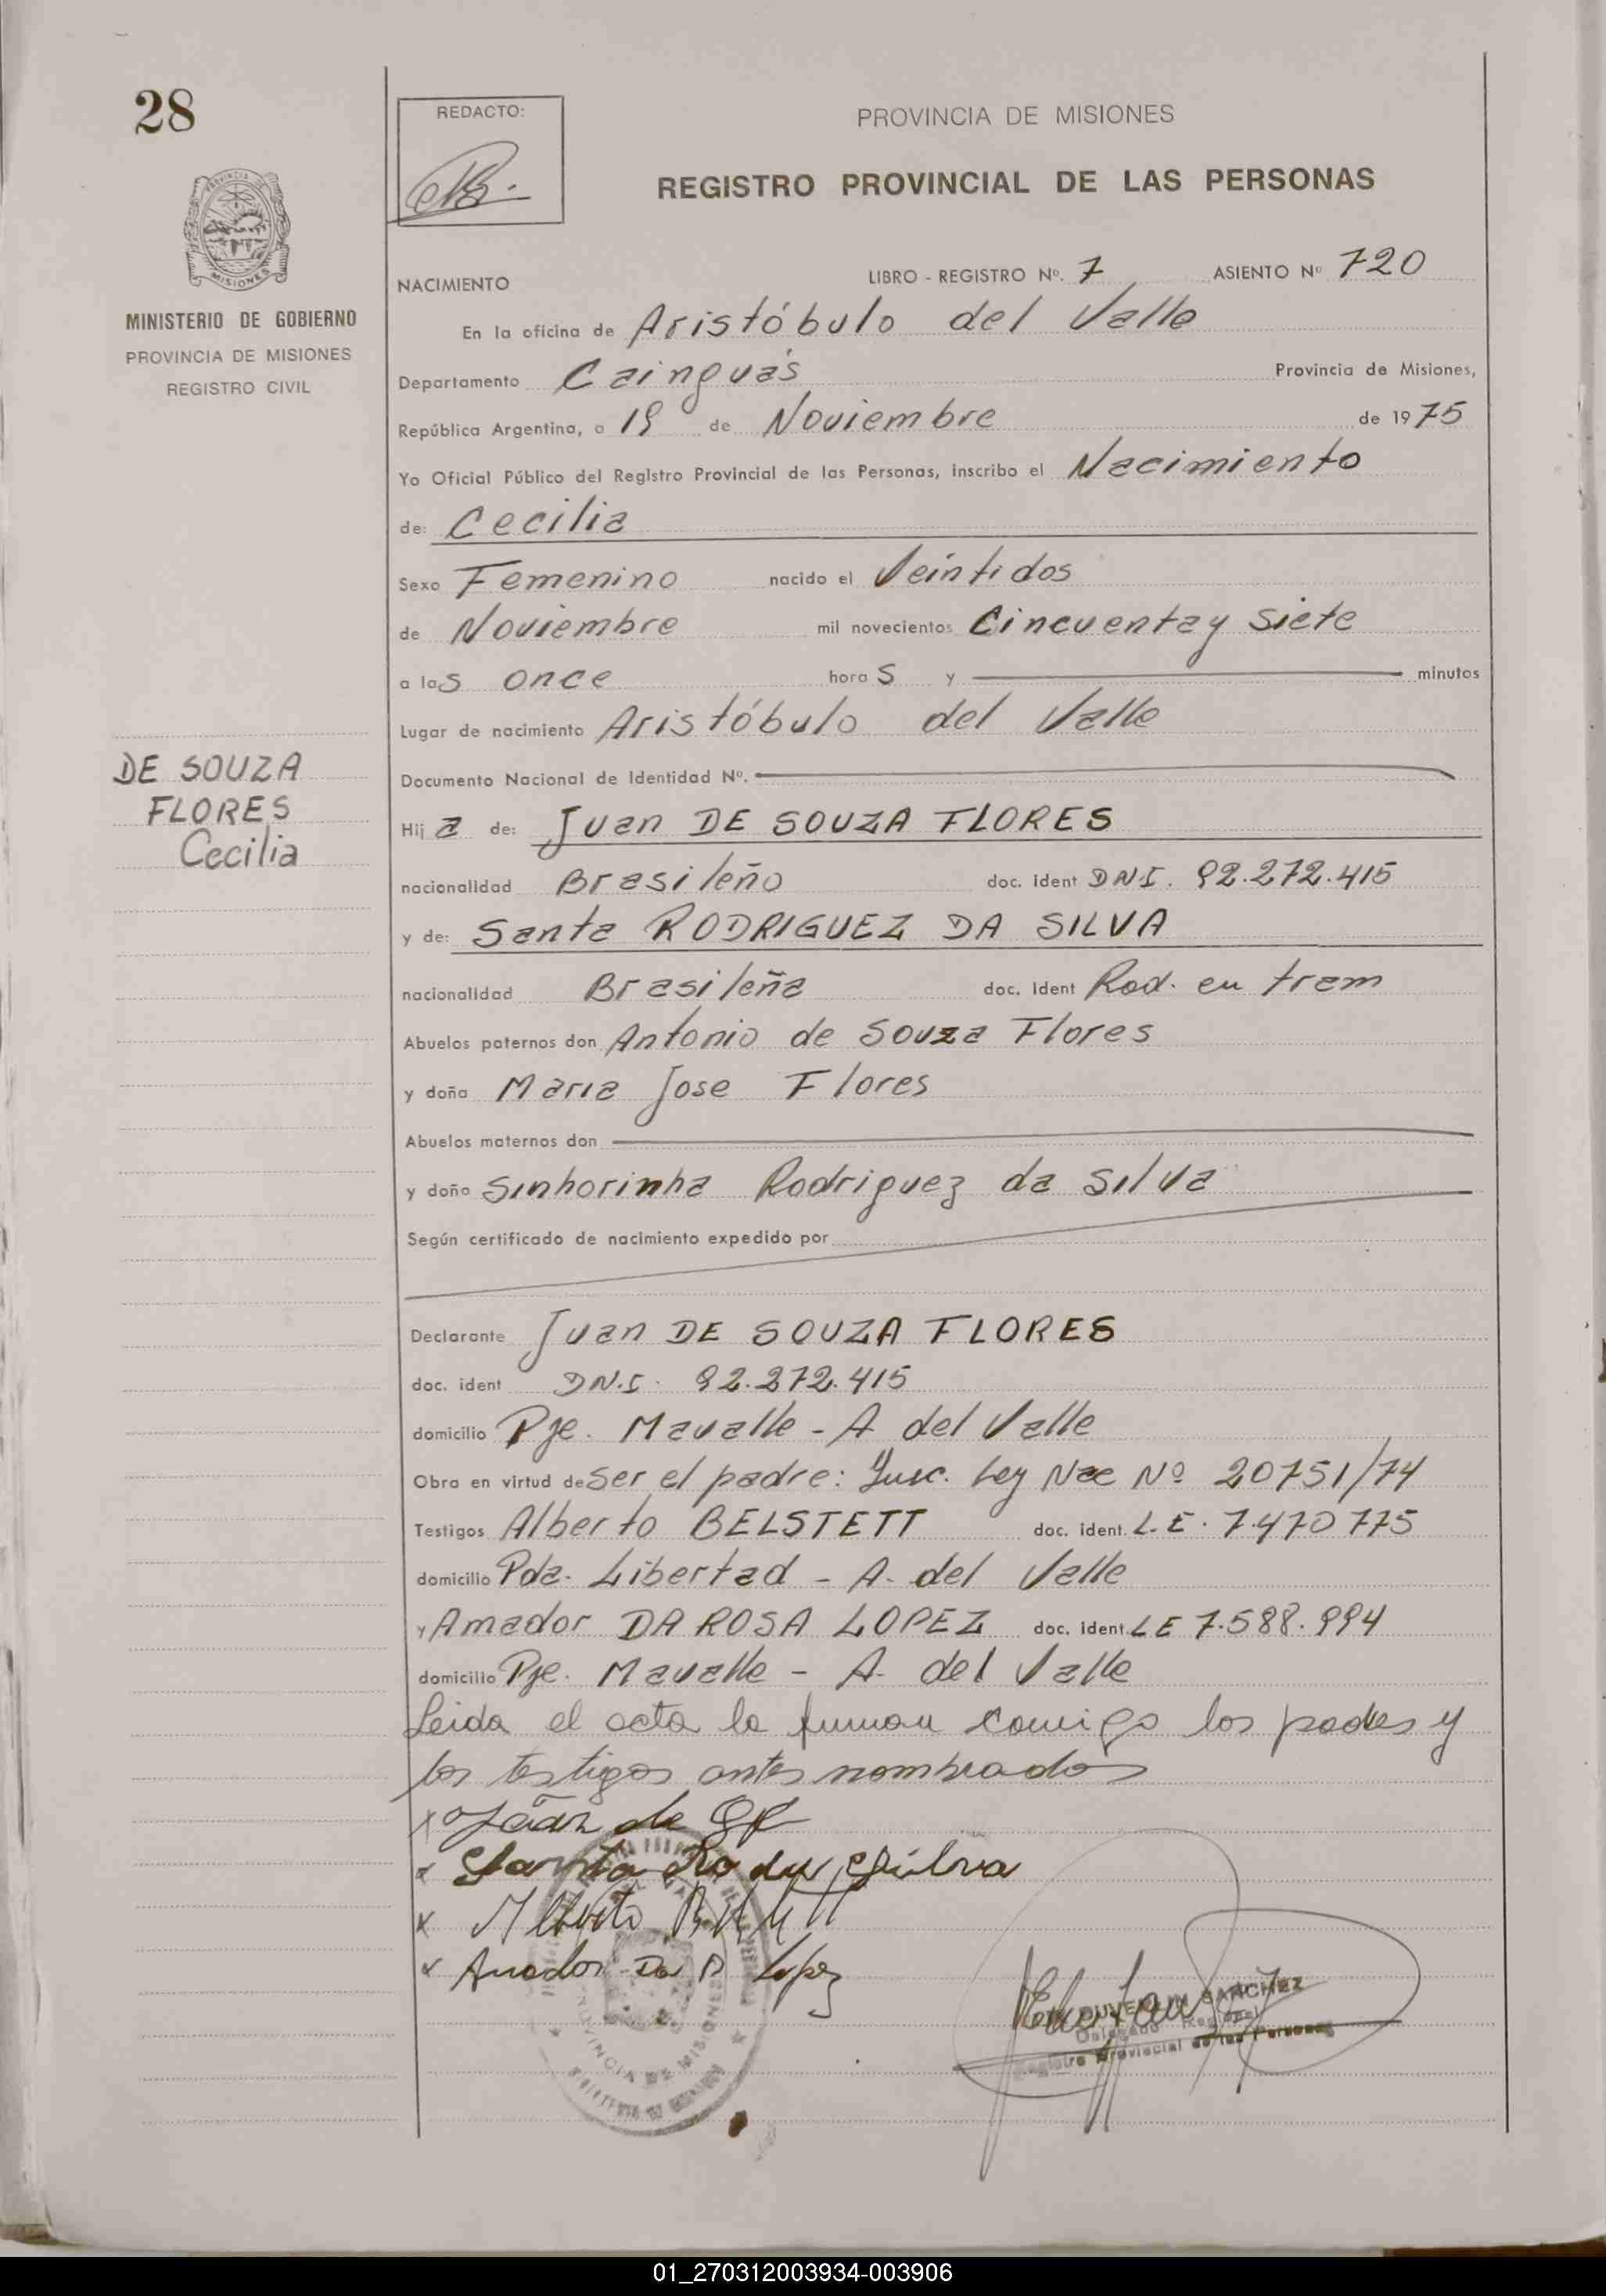 28
REDACTO:
PROVINCIA DE MISIONES
REGISTRO PROVINCIAL DE LAS PERSONAS
MISIONES
MINISTERIO DE GOBIERNO
PROVINCIA DE MISIONES
REGISTRO CIVIL
NACIMIENTO LIBRO - REGISTRO Nº. 7 ASIENTO Nº 720
En la oficina de Aristóbulo del Valle
Departamento Cainguás Provincia de Misiones,
República Argentina, a 19 de Noviembre de 1975
Yo Oficial Público del Registro Provincial de las Personas, inscribo el Nacimiento
de: Cecilia
Sexo Femenino nacido el Veintidos
de Noviembre mil novecientos Cincuenta y Siete
a las once horas y minutos
Lugar de nacimiento Aristóbulo del Valle
DE SOUZA
FLORES
Cecilia
Documento Nacional de Identidad Nº.
Hija de: Juan DE SOUZA FLORES
nacionalidad Brasileño doc. ident D.N.I. 92.272.415
y de: Santa RODRIGUEZ DA SILVA
nacionalidad Brasileña doc. ident Rad. en tram
Abuelos paternos don Antonio de Souza Flores
y doña Maria Jose Flores
Abuelos maternos don
y doña Sinhorinha Rodriguez da Silva
Según certificado de nacimiento expedido por
Declarante Juan DE SOUZA FLORES
doc. ident D.N.I. 92.272.415
domicilio Pje. Mavalle - A del Valle
Obra en virtud de ser el padre: Insc. Ley Nac Nº 20751/74
Testigos Alberto BELSTETT doc. ident. L.E. 7470775
domicilio Pda. Libertad - A. del Valle
y Amador DA ROSA LOPEZ doc. ident. LE 7.588.994
domicilio Pje. Mavalle - A. del Valle
Leida el acta la firman conmigo los padres y
los testigos antes nombrados
Santa Silva
Alberto
Amador Da R Lopez
SANCHEZ
Delegado Regional
Registro Provincial de las Personas
PROVINCIA DE MISIONES
01_270312003934-003906